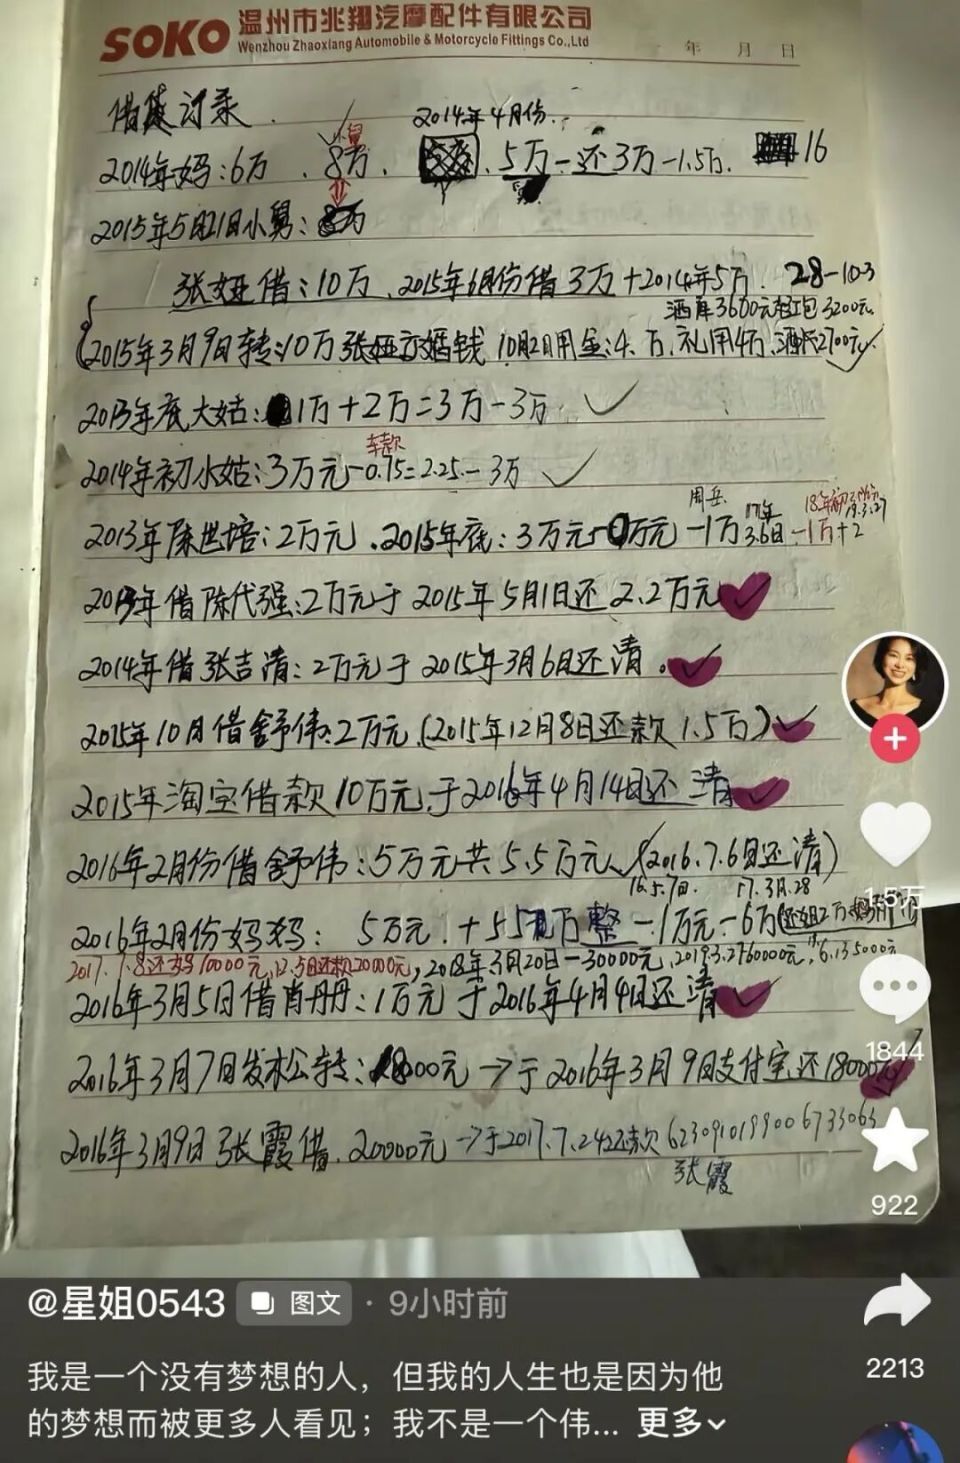 SOKO 温州市兆翔汽摩配件有限公司
Wenzhou Zhaoxiang Automobile & Motorcycle Fittings Co.,Ltd
年 月 日
借 记录
2014年4月份
小舅
2014年妈:6万 . 8万. 5万-还3万-1.5万. 16
2015年5月21日小舅:
张娅借:10万、2015年6月份借3万+2014年5万. 28-10.3
酒席3600元 红包3200元
2015年3月9日转:10万张娅 婚钱 10月2日用金:4.万.礼用4万.酒 2700元
2013年底大姑: 1万+2万=3万-3万
车款
2014年初小姑:3万元-0.75=2.25-3万
周岳 17年 18年
2013年陈世培:2万元.2015年底:3万元- 万元-1万 3.6日-1万+2
年借陈代强:2万元于2015年5月1日还2.2万元
2014年借张吉清:2万元于2015年3月6日还清.
2015年10月借舒伟:2万元(2015年12月8日还款1.5万)
2015年淘宝借款10万元于2016年4月14日还清
2016年2月份借舒伟:5万元共5.5万元(2016.7.6日还清)
16.5.7日. 17.3月.28
2016年2月份妈妈: 5万元.+5.5 万整-1万元-6万
2017.7.8还妈10000元, 还款20000元,2018年3月20日-30000元,
2016年3月5日借肖丹丹:1万元于2016年4月4日还清
2016年3月7日发松转: 000元→于2016年3月9日支付宝还18000元
2016年3月9日张霞借.20000元→于2017.7.24还款
张霞
1.5万
1844
922
2213
@星姐0543 图文 · 9小时前
我是一个没有梦想的人，但我的人生也是因为他
的梦想而被更多人看见；我不是一个伟... 更多